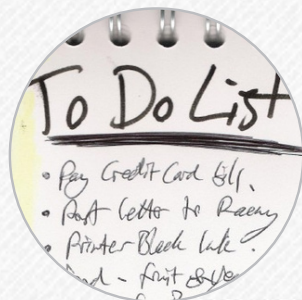 To Do List
• Pay Credit Card bill.
• Post letter to
• Printer Black Ink.
- fruit